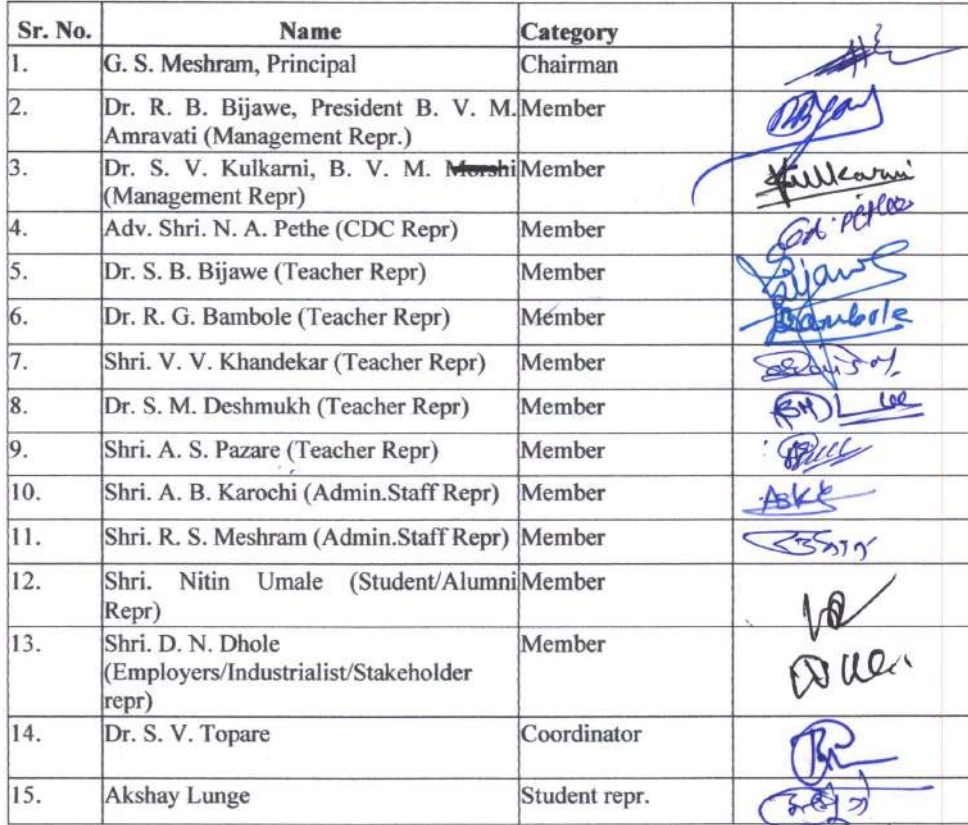 Sr. No. Name Category
1. G. S. Meshram, Principal Chairman
2. Dr. R. B. Bijawe, President B. V. M. Member
Amravati (Management Repr.)
3. Dr. S. V. Kulkarni, B. V. M. Morshi Member Kulkarni
(Management Repr)
4. Adv. Shri. N. A. Pethe (CDC Repr) Member
5. Dr. S. B. Bijawe (Teacher Repr) Member
6. Dr. R. G. Bambole (Teacher Repr) Member Bambole
7. Shri. V. V. Khandekar (Teacher Repr) Member
8. Dr. S. M. Deshmukh (Teacher Repr) Member
9. Shri. A. S. Pazare (Teacher Repr) Member
10. Shri. A. B. Karochi (Admin.Staff Repr) Member
11. Shri. R. S. Meshram (Admin.Staff Repr) Member
12. Shri. Nitin Umale (Student/Alumni Member
Repr)
13. Shri. D. N. Dhole Member
(Employers/Industrialist/Stakeholder
repr)
14. Dr. S. V. Topare Coordinator
15. Akshay Lunge Student repr.